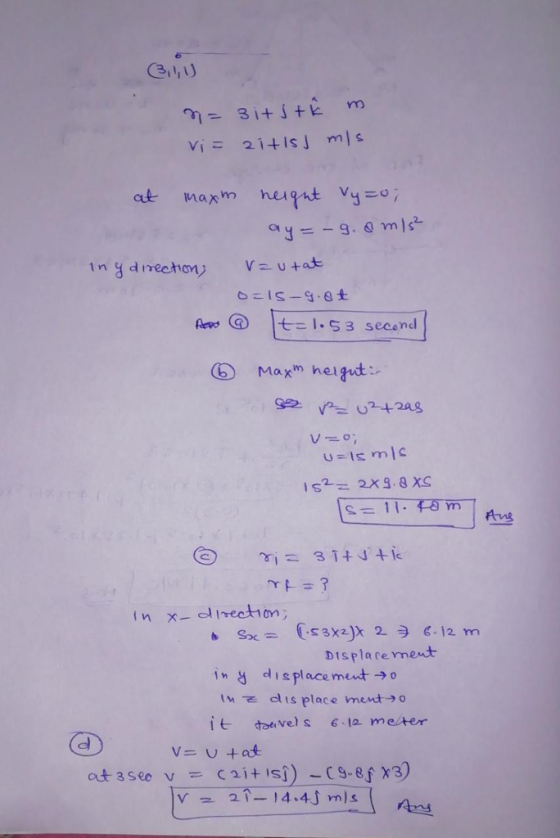 (3,1,1)
r1 = 3i+j+k̂ m
Vi = 2i+15j m/s
at maxm height Vy=0;
ay = -9.8 m/s²
in y direction; V=u+at
0=15-9.8t
Ans (a) t=1.53 second
(b) Maxm height:-
V²= U²+2as
V=0;
U=15 m/s
15²= 2x9.8xS
S= 11.48m Ans
(c) ri = 3i+j+k
rf = ?
in x-direction;
Sx = (1.53x2)x 2 ⇒ 6.12 m
Displacement
in y displacement → 0
in z displacement → 0
it travels 6.12 meter
(d) V= U +at
at 3sec V = (2i+15ĵ) - (9.8ĵ x3)
V = 2î-14.4ĵ m/s Ans